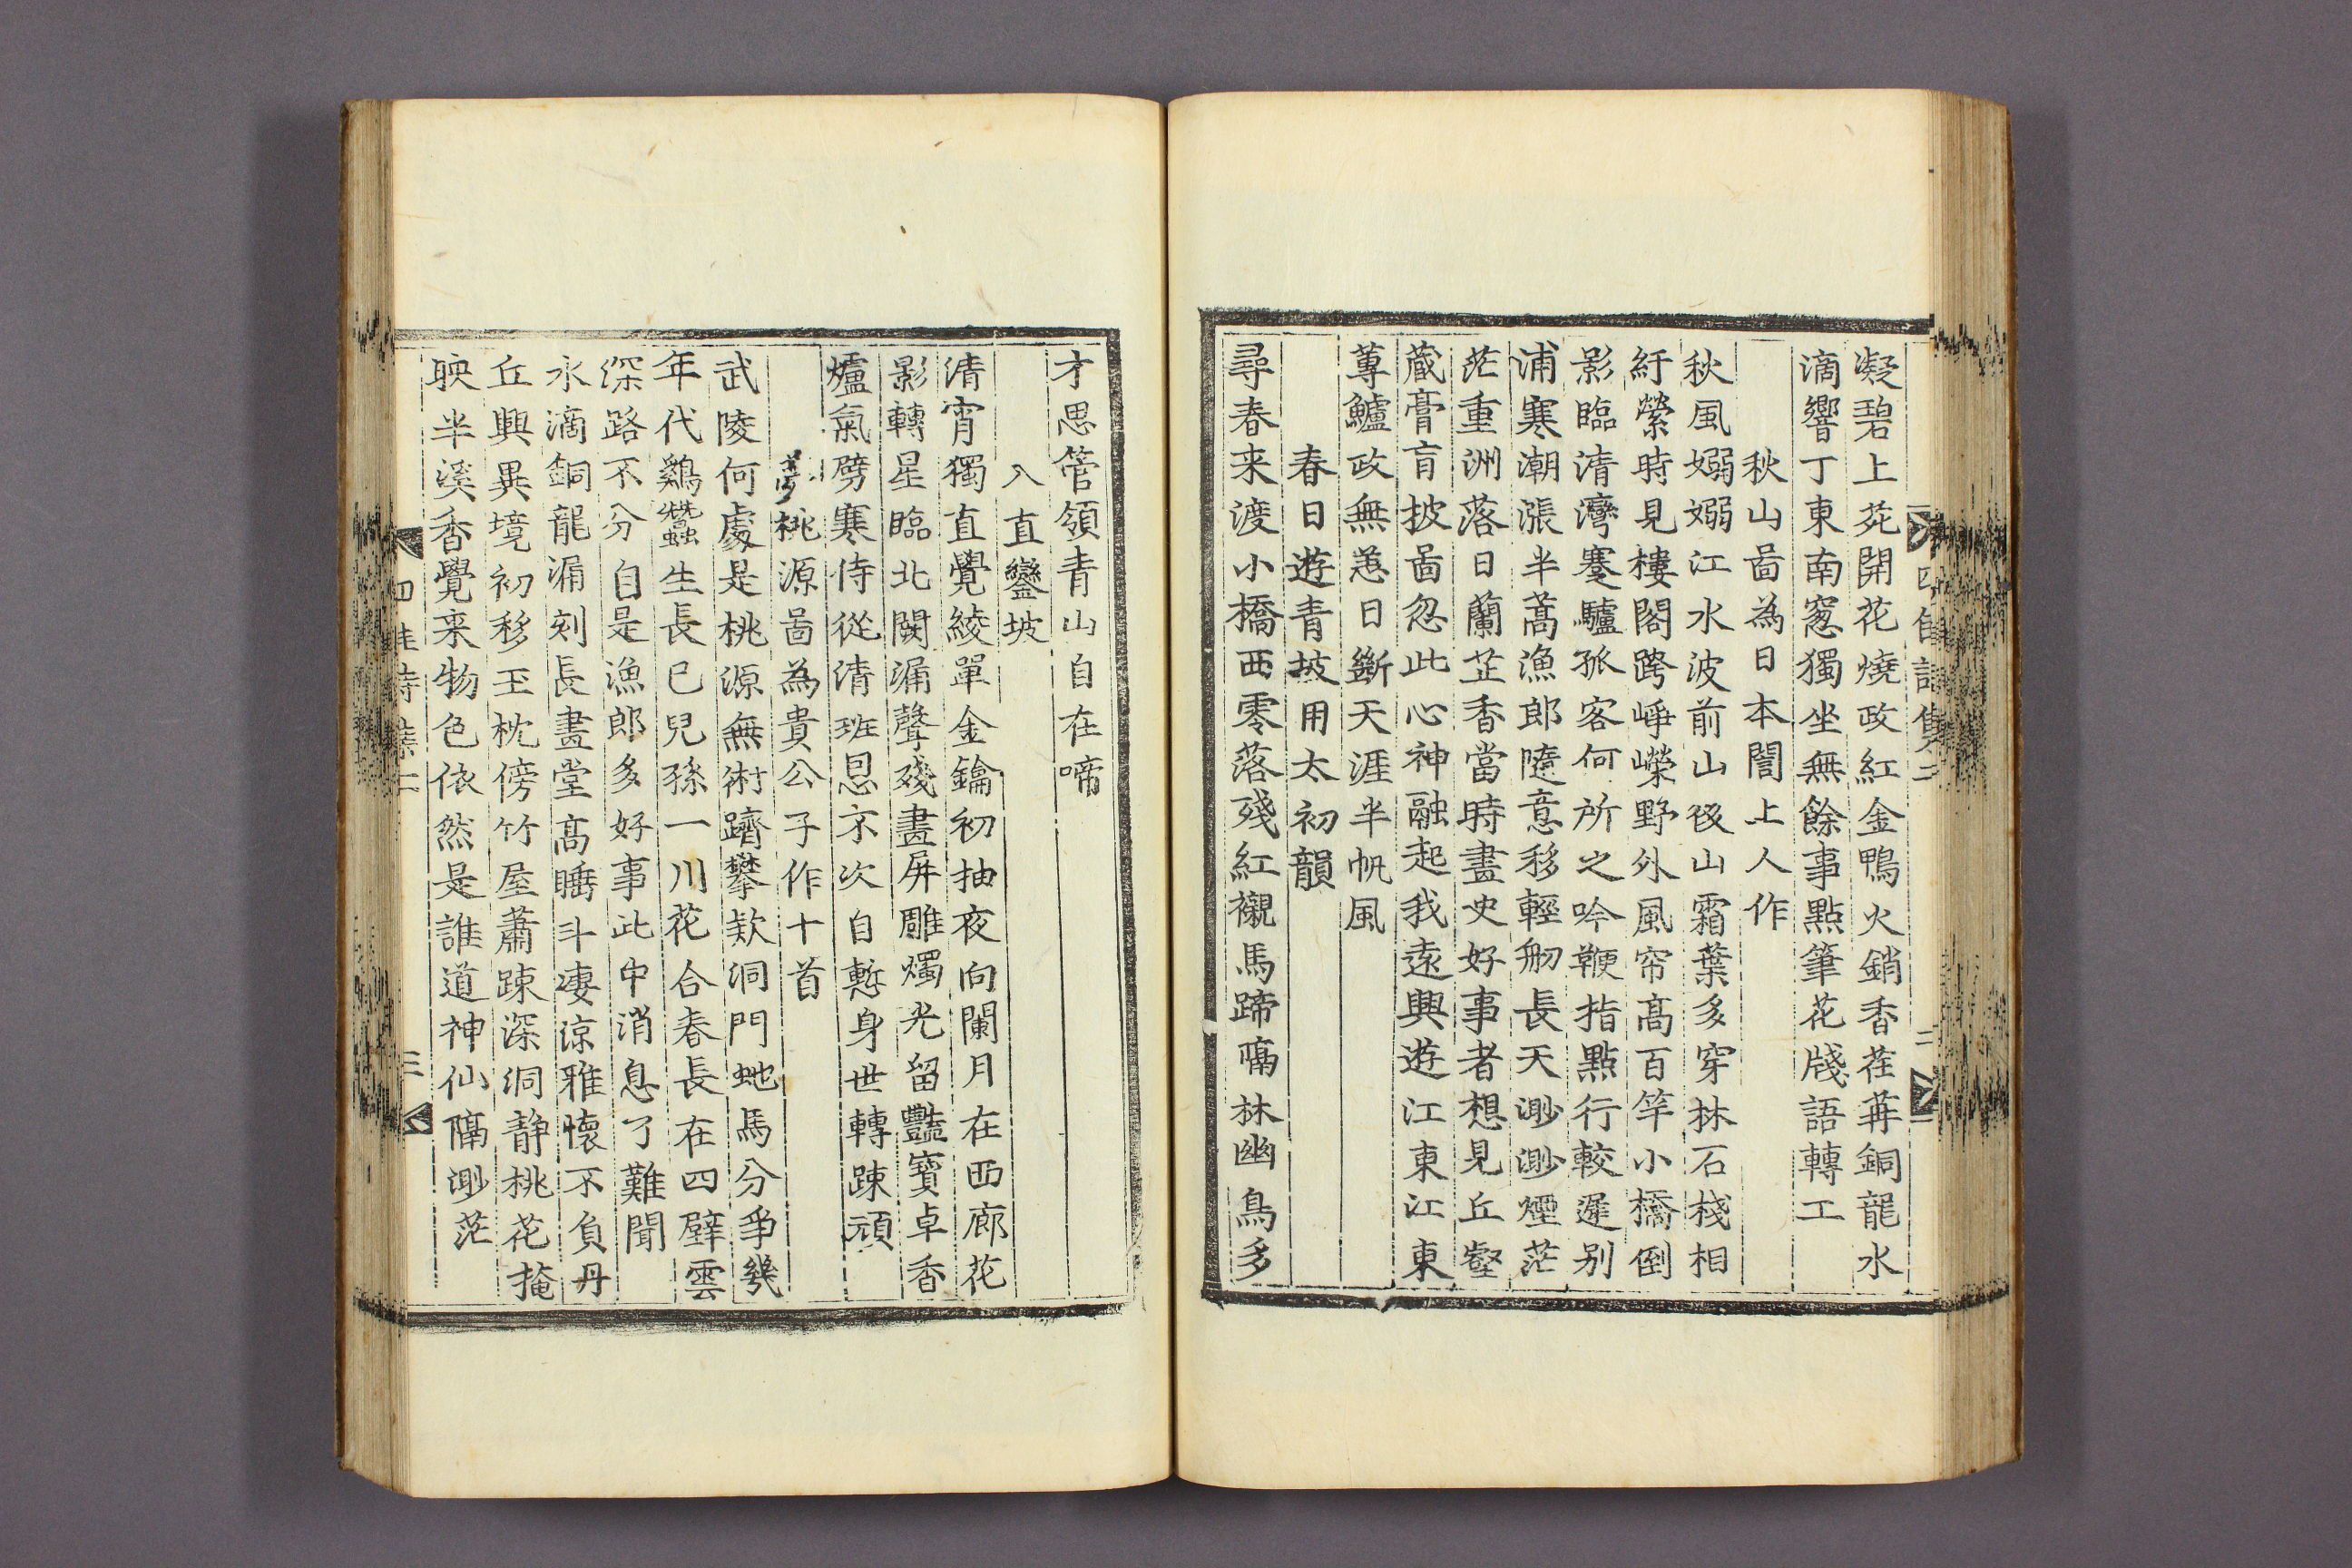 凝碧上苑開花燒政紅金鴨火銷香荏苒銅龍水
滴響丁東南窓獨坐無餘事點筆花牋語轉工
秋山啚為日本誾上人作
秋風嫋嫋江水波前山後山霜葉多穿林石棧相
紆縈時見樓閣跨崢嶸野外風帘高百竿小橋倒
影臨清灣蹇驢孤客何所之吟鞭指點行較遲別
浦寒潮漲半蒿漁郎隨意移輕舠長天渺渺煙茫
茫重洲落日蘭芷香當時畫史好事者想見丘壑
藏膏肓披啚忽此心神融起我遠興遊江東江東
蓴鱸政無恙日斷天涯半帆風
春日遊青坡用太初韻
尋春来渡小橋西零落殘紅襯馬蹄隔林幽鳥多
四佳詩集二
二
才思管領青山自在啼
入直鑾坡
清宵獨直覺綾單金鑰初抽夜向闌月在西廊花
影轉星臨北闕漏聲殘畫屏雕燭光留豔寶卓香
爐氣劈寒侍從清班恩不次自慙身世轉踈頑
夢桃源啚為貴公子作十首
武陵何處是桃源無術躋攀欵洞門虵馬分爭幾
年代鷄蠶生長已兒孫一川花合春長在四壁雲
深路不分自是漁郎多好事此中消息了難聞
水滴銅龍漏刻長畫堂高睡斗凄涼雅懷不負丹
丘興異境初移玉枕傍竹屋蕭踈深洞靜桃花掩
映半溪香覺来物色依然是誰道神仙隔渺茫
四佳詩集二
三